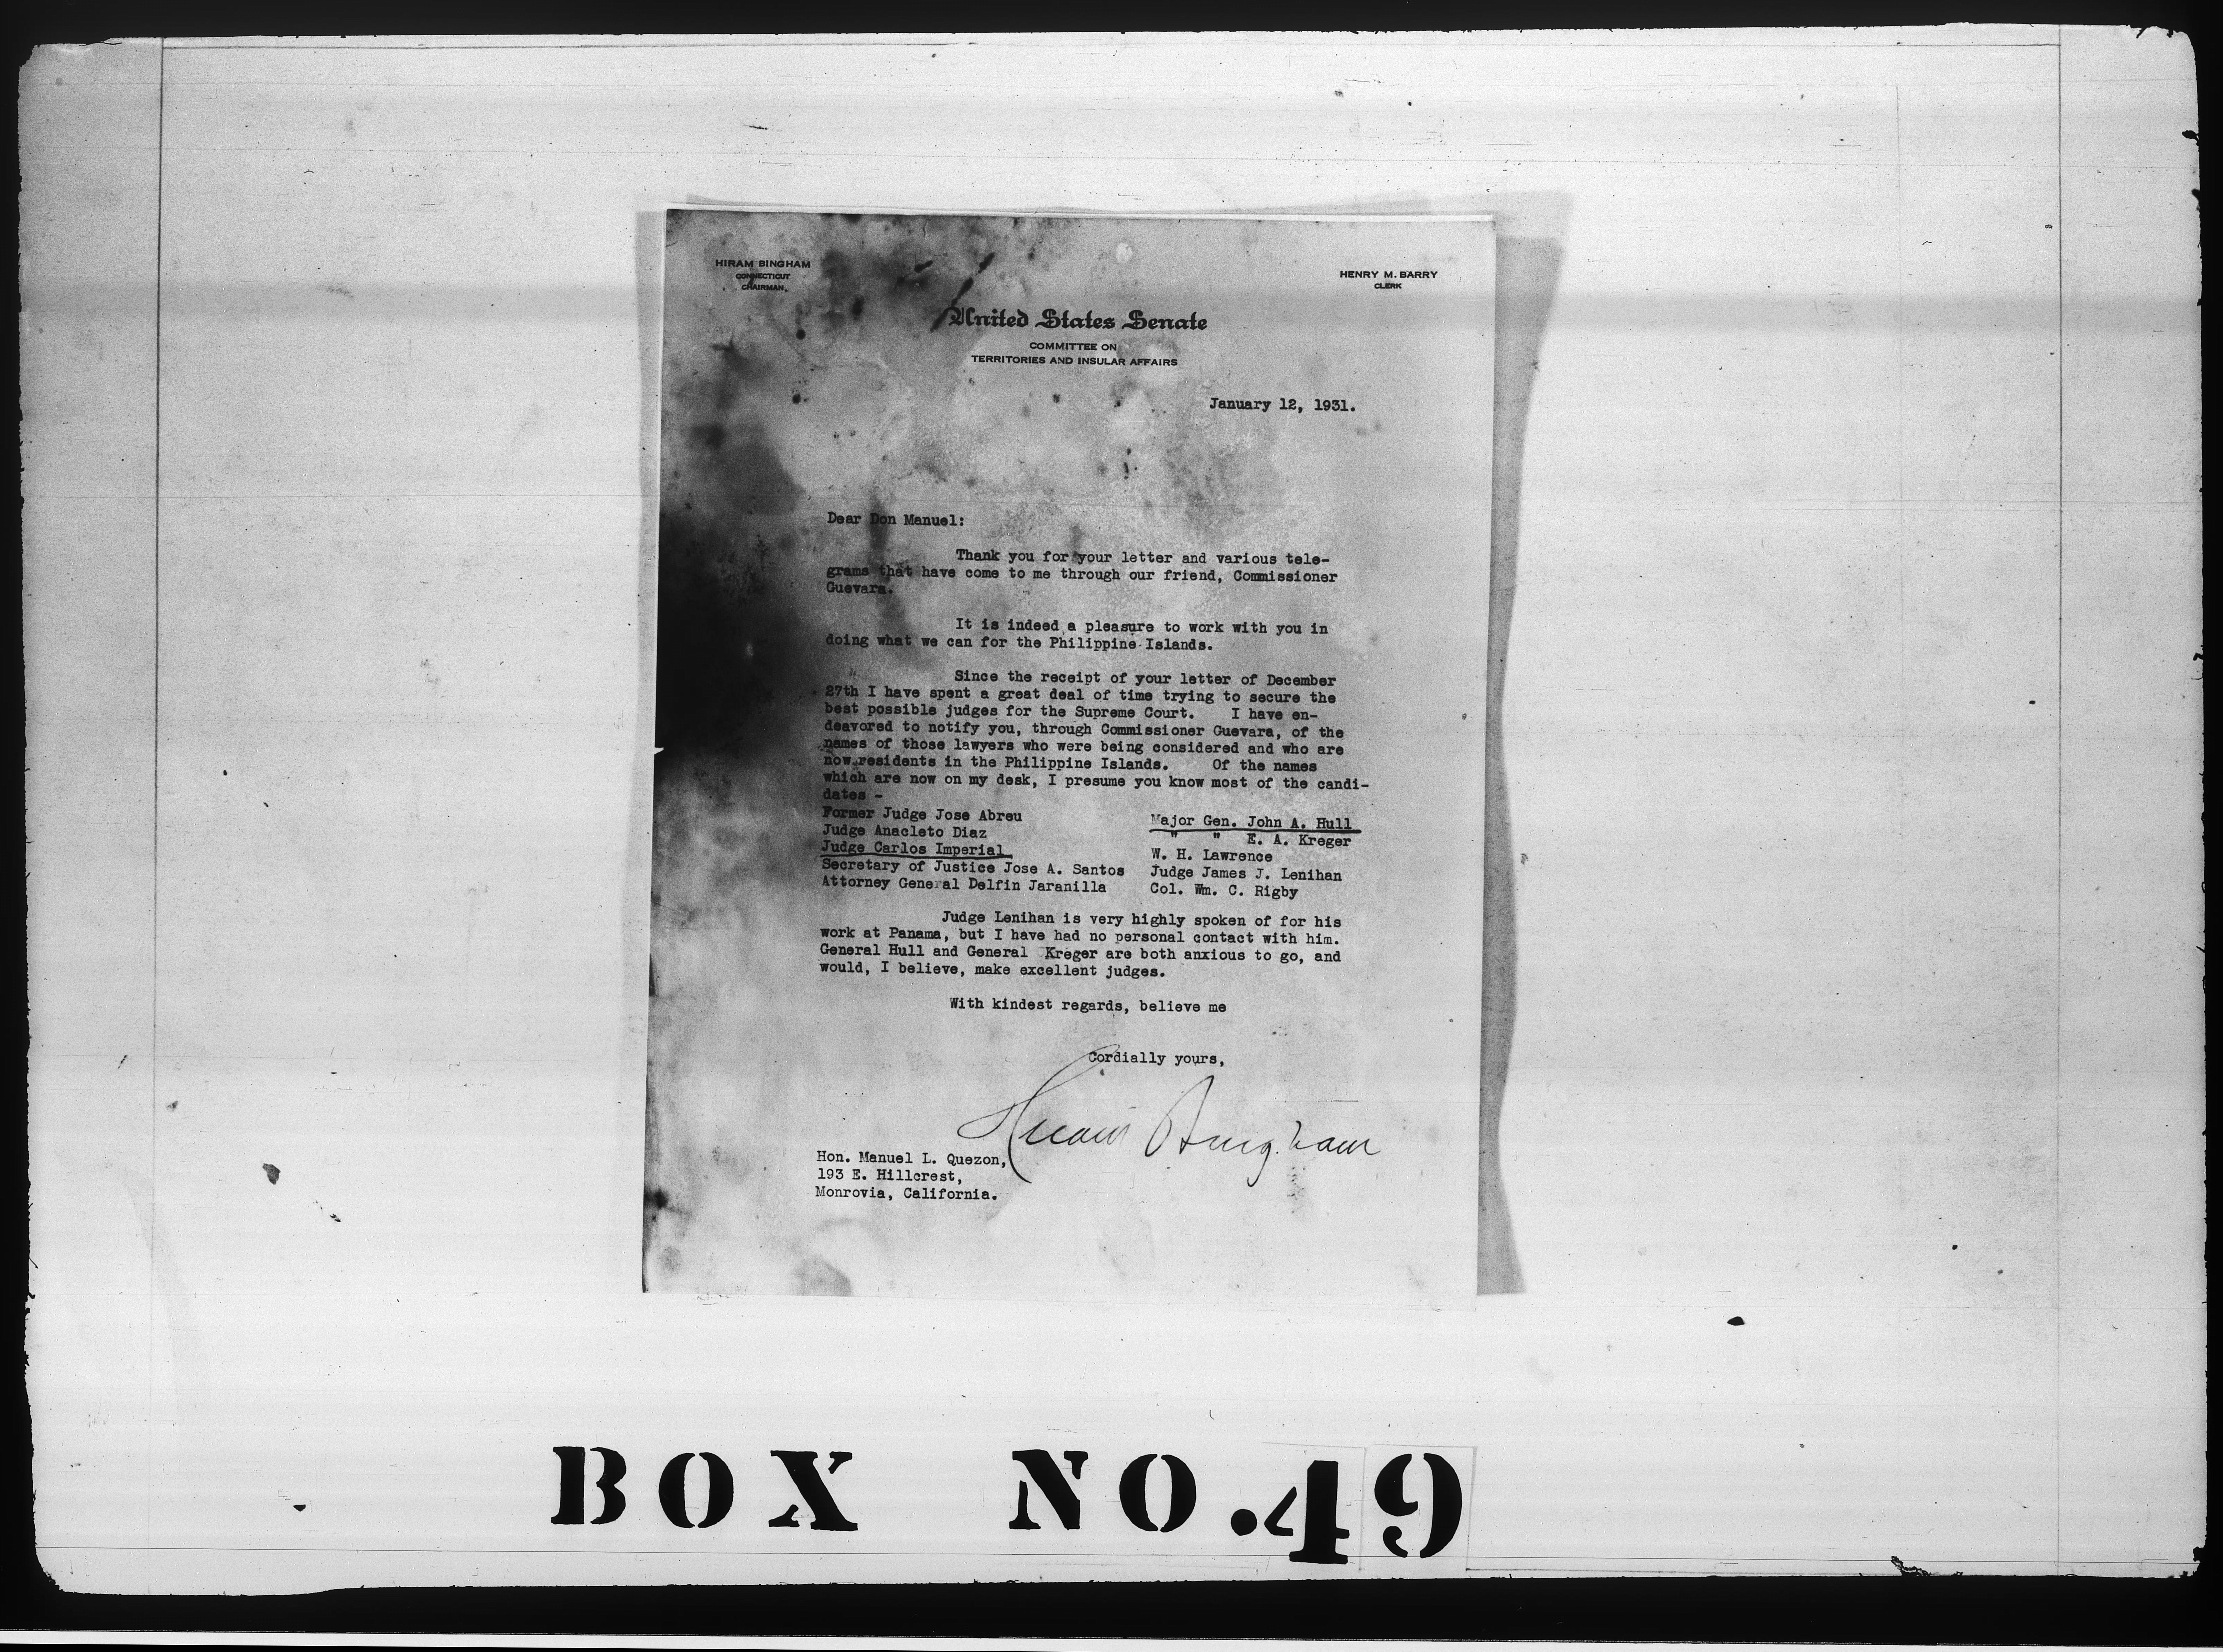 HIRAM BINGHAM
CONNECTICUT
CHAIRMAN.
HENRY M. BARRY
CLERK
United States Senate
COMMITTEE ON
TERRITORIES AND INSULAR AFFAIRS
January 12, 1931.
Dear Don Manuel:
Thank you for your letter and various tele-
grams that have come to me through our friend, Commissioner
Guevara.
It is indeed a pleasure to work with you in
doing what we can for the Philippine Islands.
Since the receipt of your letter of December
27th I have spent a great deal of time trying to secure the
best possible judges for the Supreme Court. I have en-
deavored to notify you, through Commissioner Guevara, of the
names of those lawyers who were being considered and who are
now residents in the Philippine Islands. Of the names
which are now on my desk, I presume you know most of the candi-
dates -
Former Judge Jose Abreu
Judge Anacleto Diaz
Judge Carlos Imperial
Secretary of Justice Jose A. Santos
Attorney General Delfin Jaranilla
Major Gen. John A. Hull
" " E. A. Kreger
W. H. Lawrence
Judge James J. Lenihan
Col. Wm. C. Rigby
Judge Lenihan is very highly spoken of for his
work at Panama, but I have had no personal contact with him.
General Hull and General Kreger are both anxious to go, and
would, I believe, make excellent judges.
With kindest regards, believe me
Cordially yours,
Hiram Bingham
Hon. Manuel L. Quezon,
193 E. Hillcrest,
Monrovia, California.
BOX NO. 49